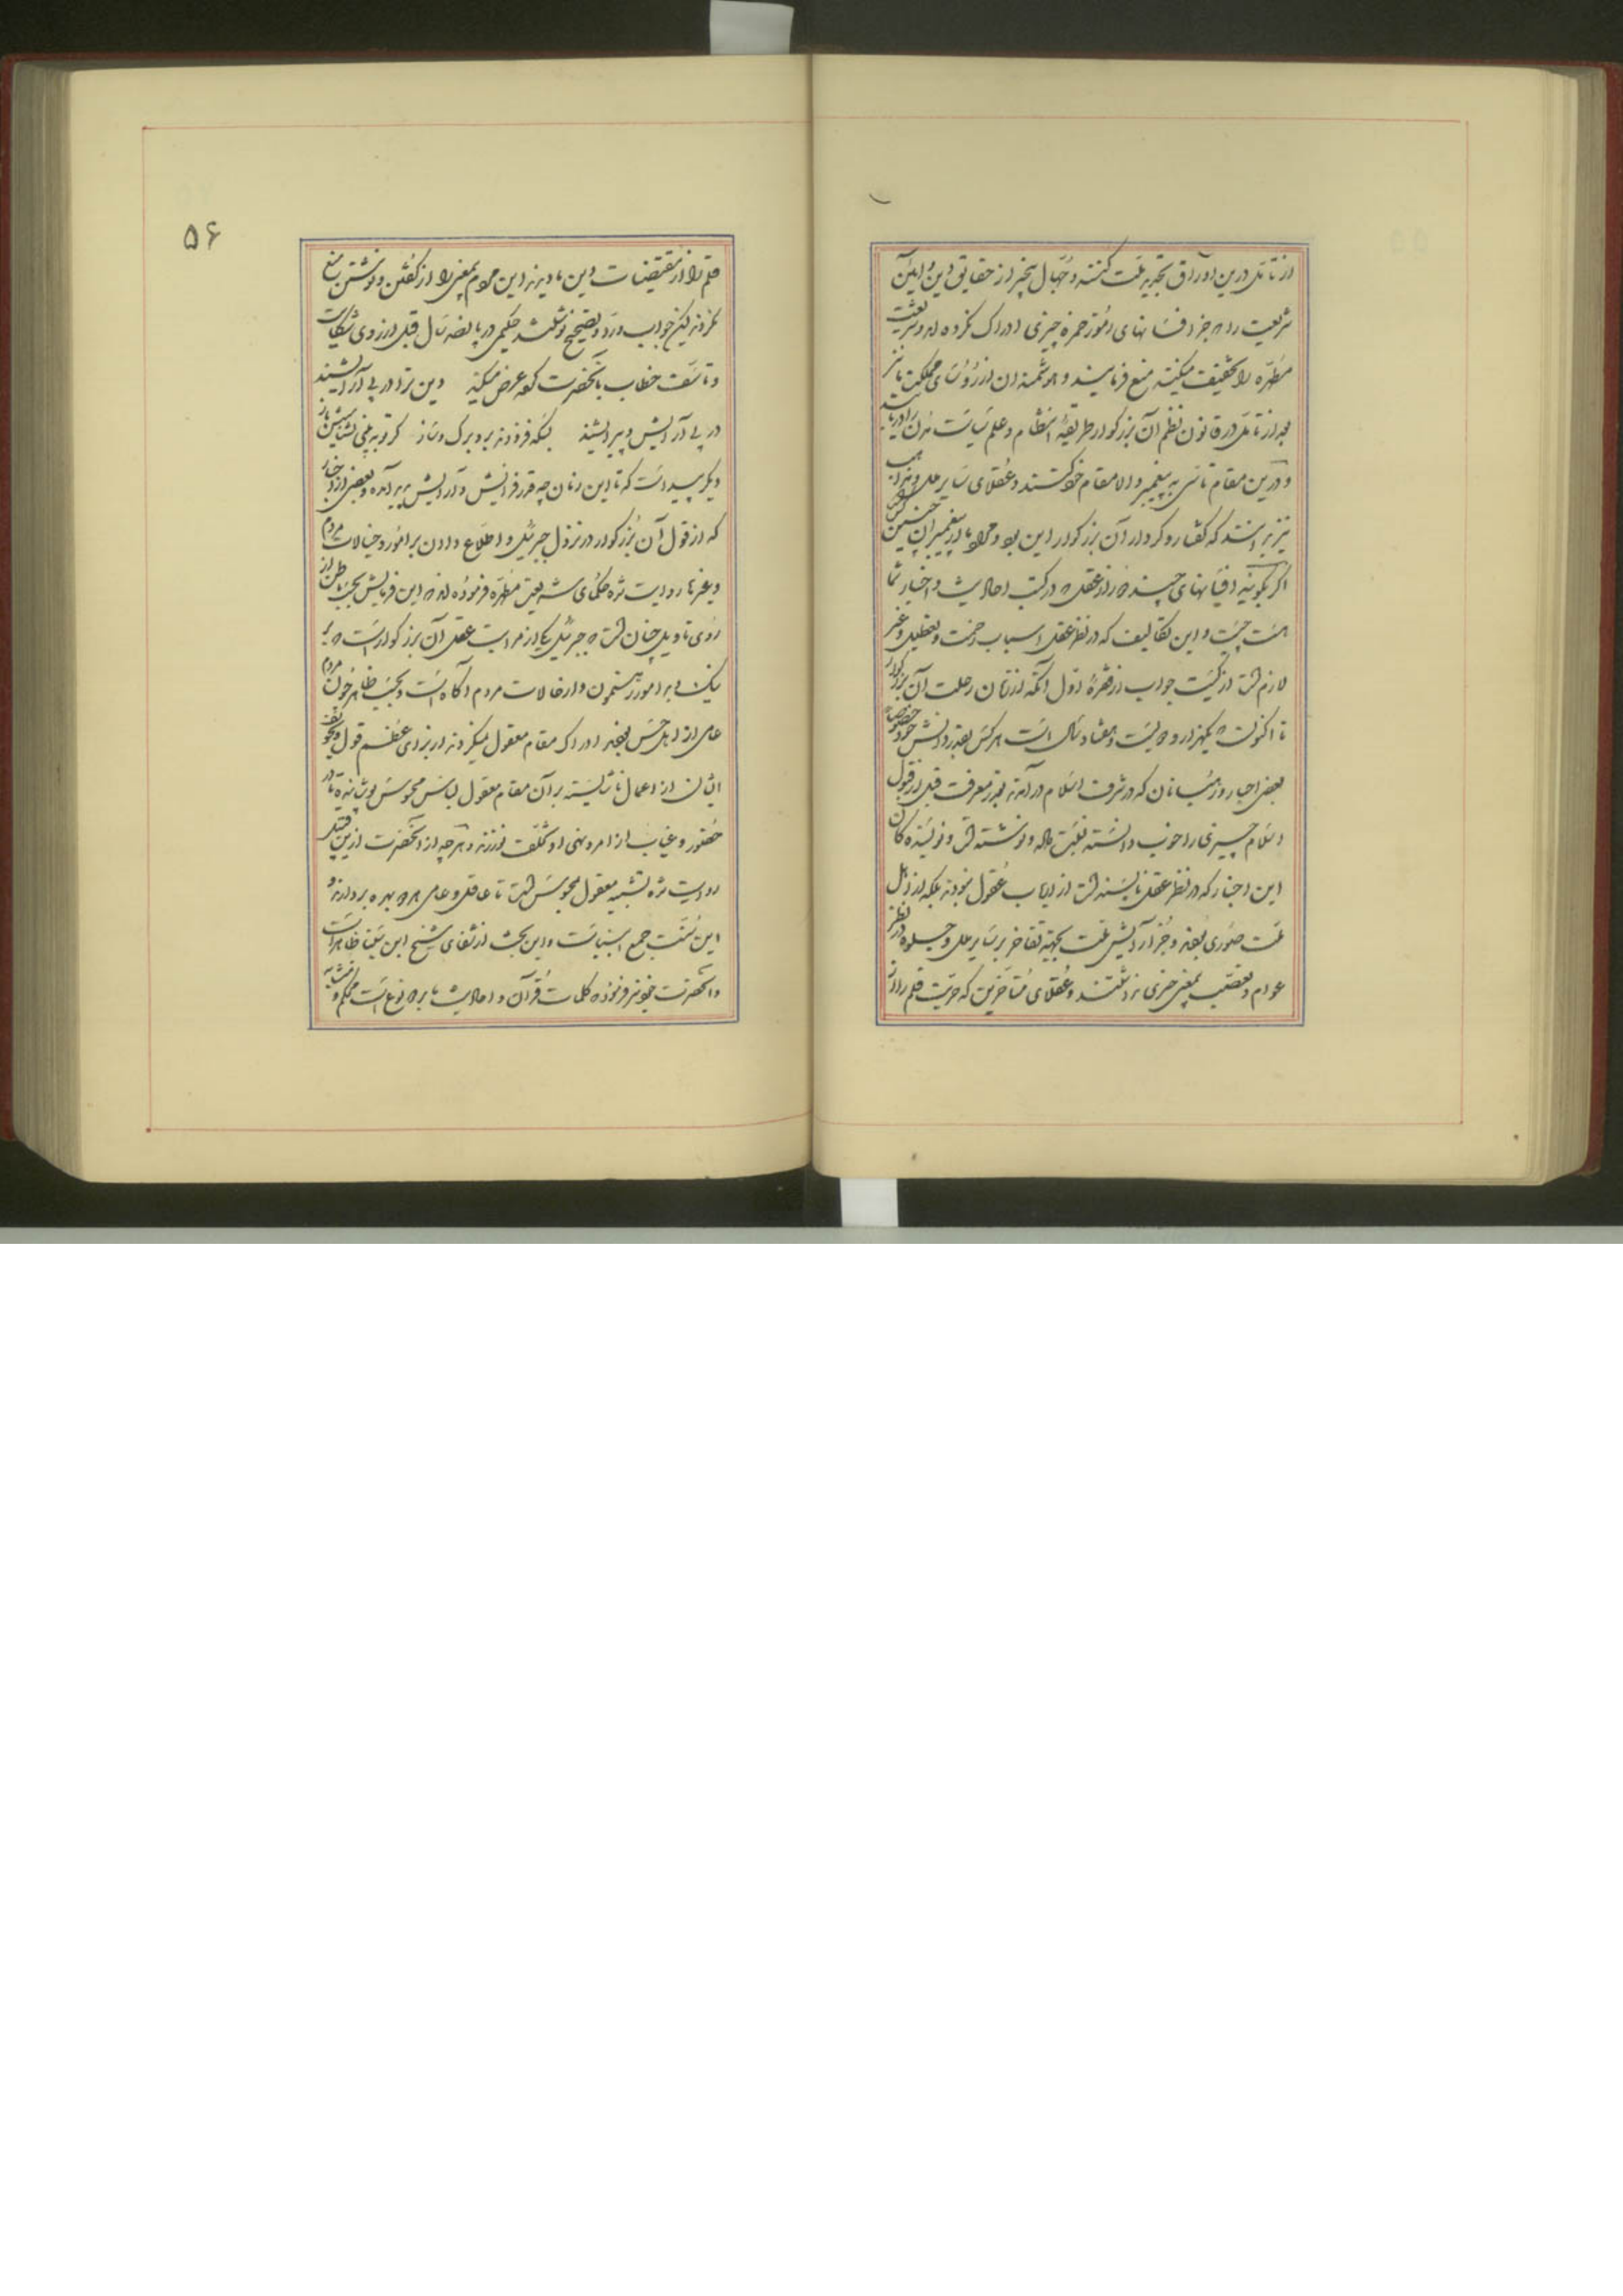 از تأمل درین اوراق تجربه ملت کنند و جهال بیخبر از حقایق دین و آیین
شریعت را بجز افسانهای چیزی ادراک نکرده اند و شریعت
مطهره را تخفیف میکنند منع فرمایند و هوشمندان از رؤسای مملکت ما نیز
بعد از تأمل در قانون نظم آن بزرگوار طریقه انتظام و علم سیاست مدن را دریابند
و درین مقام تأسی به پیغمبر والا مقام خود کنند و عقلای سایر ملل و مذاهب
نیز بدانند که گفتار و کردار آن بزرگوار این بود و مراد ما از پیغمبران چنین کس
اگر بگویند افسانهای چند دور از عقل که در کتب احادیث و اخبار شما
هست چیست و این تکالیف که در نظر عقل اسباب زحمت و تعطیل و غیر
لازم است از کیست جواب از فقره اول آنکه از زمان رحلت آن بزرگوار
تا اکنون که یکهزار و دویست و هفتاد سال است هر کس بقدر دانش خود خصوصا
بعضی احبار و رهبانان که در شرف اسلام درآمدند بقدر معرفت قبل از قبول
اسلام چیزی را خوب دانسته نسبت داده و نوشته اند و نویسندگان
این اخبار که در نظر عقل ناپسند است از ارباب عقول نبودند بلکه از اهل
ملت صوری بودند و جز آرایش ملت بجهة تفاخر بر سایر ملل و جلوه در نظر
عوام و تعصب بمعنی خبری نداشتند و عقلای متأخرین که حریت قلم را از
۵۶
قلم را از مقتضیات دین ما دیدند این مردم بمعنی را از گفتن و نوشتن منع
نکردند لیکن جواب و رد و تصحیح نوشتند حکیمی در پانصد سال قبل از روی شکایت
و تأسف خطاب بآنحضرت کرده عرض میکند دین ترا در پی آرایشند
در پی آرایش و پیرایشند بسکه فزودند برو برگ و ساز گر تو ببینی نشناسیش باز
دیگر پیداست که تا این زمان چه قدر افزایش و آرایش پدید آمده و بعضی از اخبار
که از قول آن بزرگوار در نزول جبرئیل و اطلاع دادن بر امور و خیالات مردم
و غیرها روایت شده حکمای شریعت مطهره فرموده اند که این فرمایش بحسب باطن از
روی تأویل چنان است که جبرئیل یکی از مراتب عقل آن بزرگوار است که
نیک و بد امور و از حالات مردم آگاه است و بحسب ظاهر چون مردم
عامی از اهل حس بودند ادراک مقام معقول نمیکردند از برای عظم قول و خوف
ایشان از اعمال ناشایسته بر آن مقام معقول لباس محسوس پوشانید تا در
حضور و غیاب از امر و نهی او تخلف نورزند و هرچه از آنحضرت ازین قبیل
روایت شده تشبیه معقول بمحسوس است تا عاقل و عامی هر دو بهره بردارند و
این سنت جمیع انبیاست و این بحث از شفای شیخ ابن سینا ظاهر است
و آنحضرت خود نیز فرموده کلمات قرآن و احادیث ما بر دو نوع است محکم و متشابه